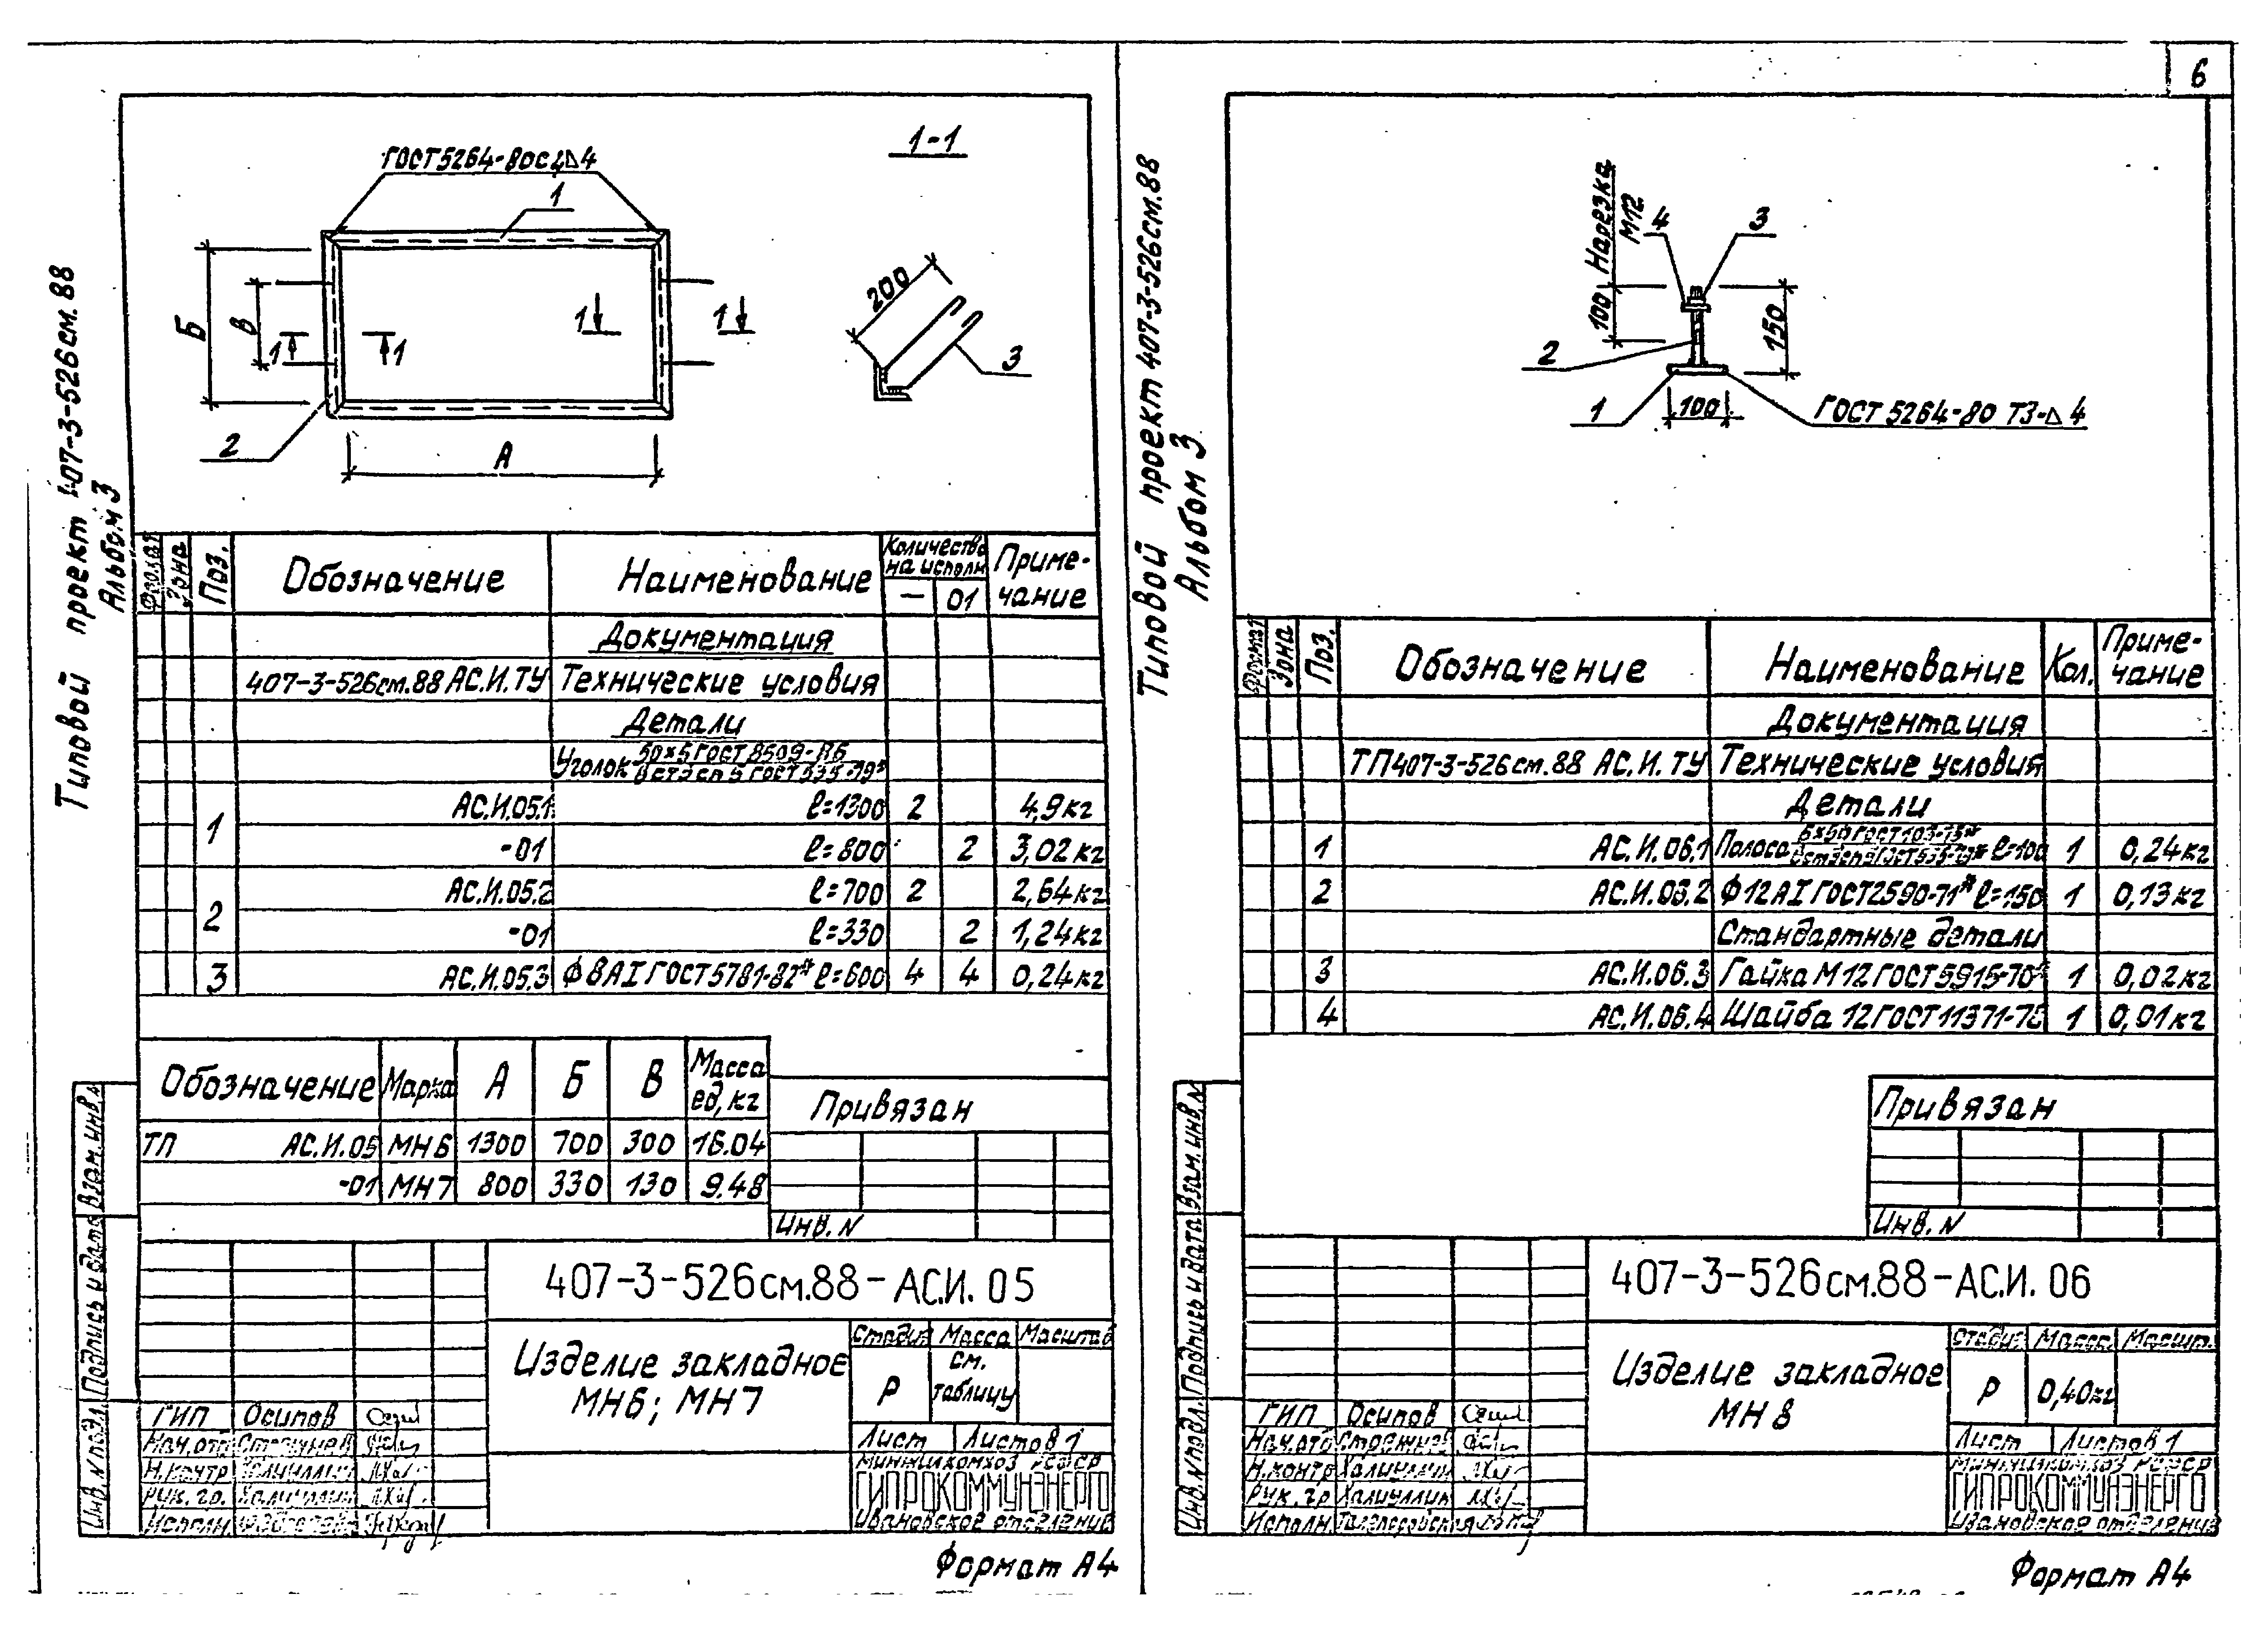 6
Типовой проект 407-3-526см.88
Альбом 3
ГОСТ 5264-80 С4 ⊿ 4
1-1
1
2
Б
В
А
1
1
1
1
200
3
Формат
Зона
Поз.
Обозначение
Наименование
Количество на исполн
—
01
Приме-
чание
Документация
407-3-526см.88 АС.И.ТУ Технические условия
Детали
Уголок 50×5 ГОСТ 8509-86
1 АС.И.05.1 ℓ=1300 2 4,9кг
-01 ℓ=800 2 3,02кг
2 АС.И.05.2 ℓ=700 2 2,64кг
-01 ℓ=330 2 1,24кг
3 АС.И.05.3 Ф8АI ГОСТ 5781-82* ℓ=600 4 4 0,24кг
Обозначение Марка А Б В Масса ед, кг
ТП АС.И.05 МН6 1300 700 300 16.04
-01 МН7 800 330 130 9.48
Привязан
Инв. N
Взам. инв. N
Подпись и дата
Инв. N подл.
407-3-526см.88-АС.И. 05
Изделие закладное
МН6; МН7
Стадия Масса Масштаб
Р см. таблицу
Лист Листов 1
Минжилкомхоз РСФСР
ГИПРОКОММУНЭНЕРГО
Ивановское отделение
ГИП Осипов
Нач.отд
Н.контр
Рук. гр.
Исполн.
Формат А4
Типовой проект 407-3-526см.88
Альбом 3
Нарезка
М12
100
4
3
2
1
150
100
ГОСТ 5264-80 Т3-⊿ 4
Формат
Зона
Поз.
Обозначение
Наименование
Кол.
Приме-
чание
Документация
ТП407-3-526см.88 АС.И.ТУ Технические условия
Детали
1 АС.И.06.1 Полоса 6×50 ГОСТ 103-76* ℓ=100 1 0,24кг
2 АС.И.06.2 Ф12АI ГОСТ 2590-71* ℓ=150 1 0,13кг
Стандартные детали
3 АС.И.06.3 Гайка М12 ГОСТ 5915-70* 1 0,02кг
4 АС.И.06.4 Шайба 12 ГОСТ 11371-78 1 0,01кг
Привязан
Инв. N
Взам. инв. N
Подпись и дата
Инв. N подл.
407-3-526см.88-АС.И. 06
Изделие закладное
МН 8
Стадия Масса Масшт.
Р 0,40кг
Лист Листов 1
Минжилкомхоз РСФСР
ГИПРОКОММУНЭНЕРГО
Ивановское отделение
ГИП Осипов
Нач.отд
Н.контр Халиуллин
Рук. гр Халиуллин
Исполн.
Формат А4